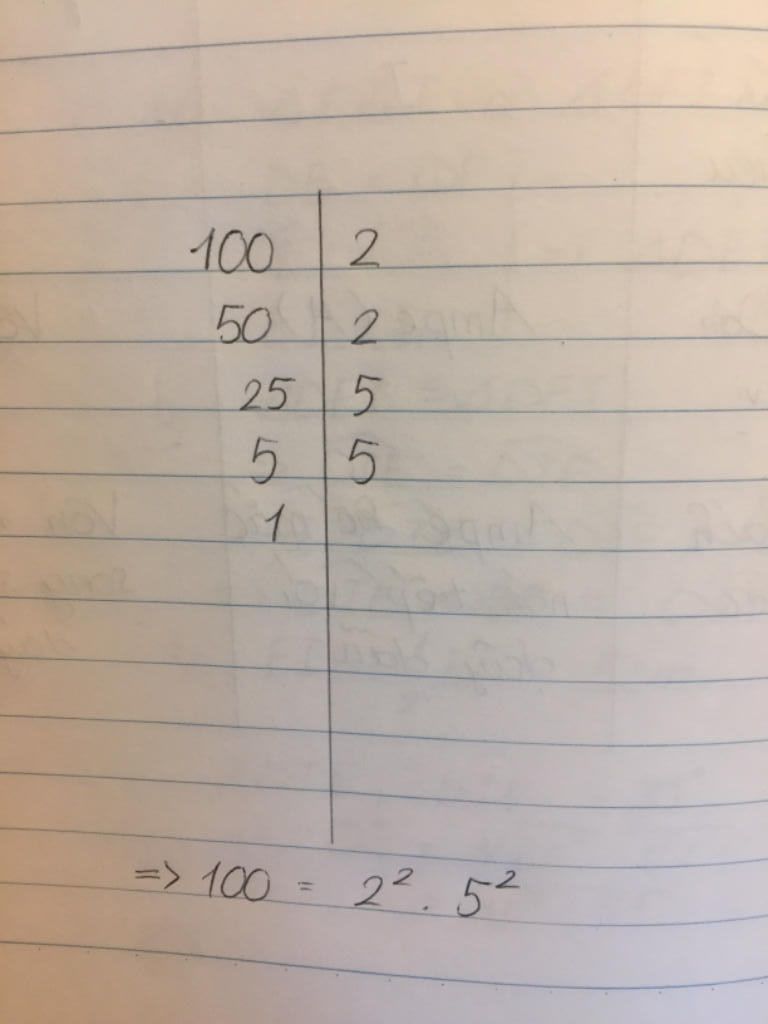 100 | 2
50 | 2
25 | 5
5 | 5
1 |
=> 100 = 2² . 5²